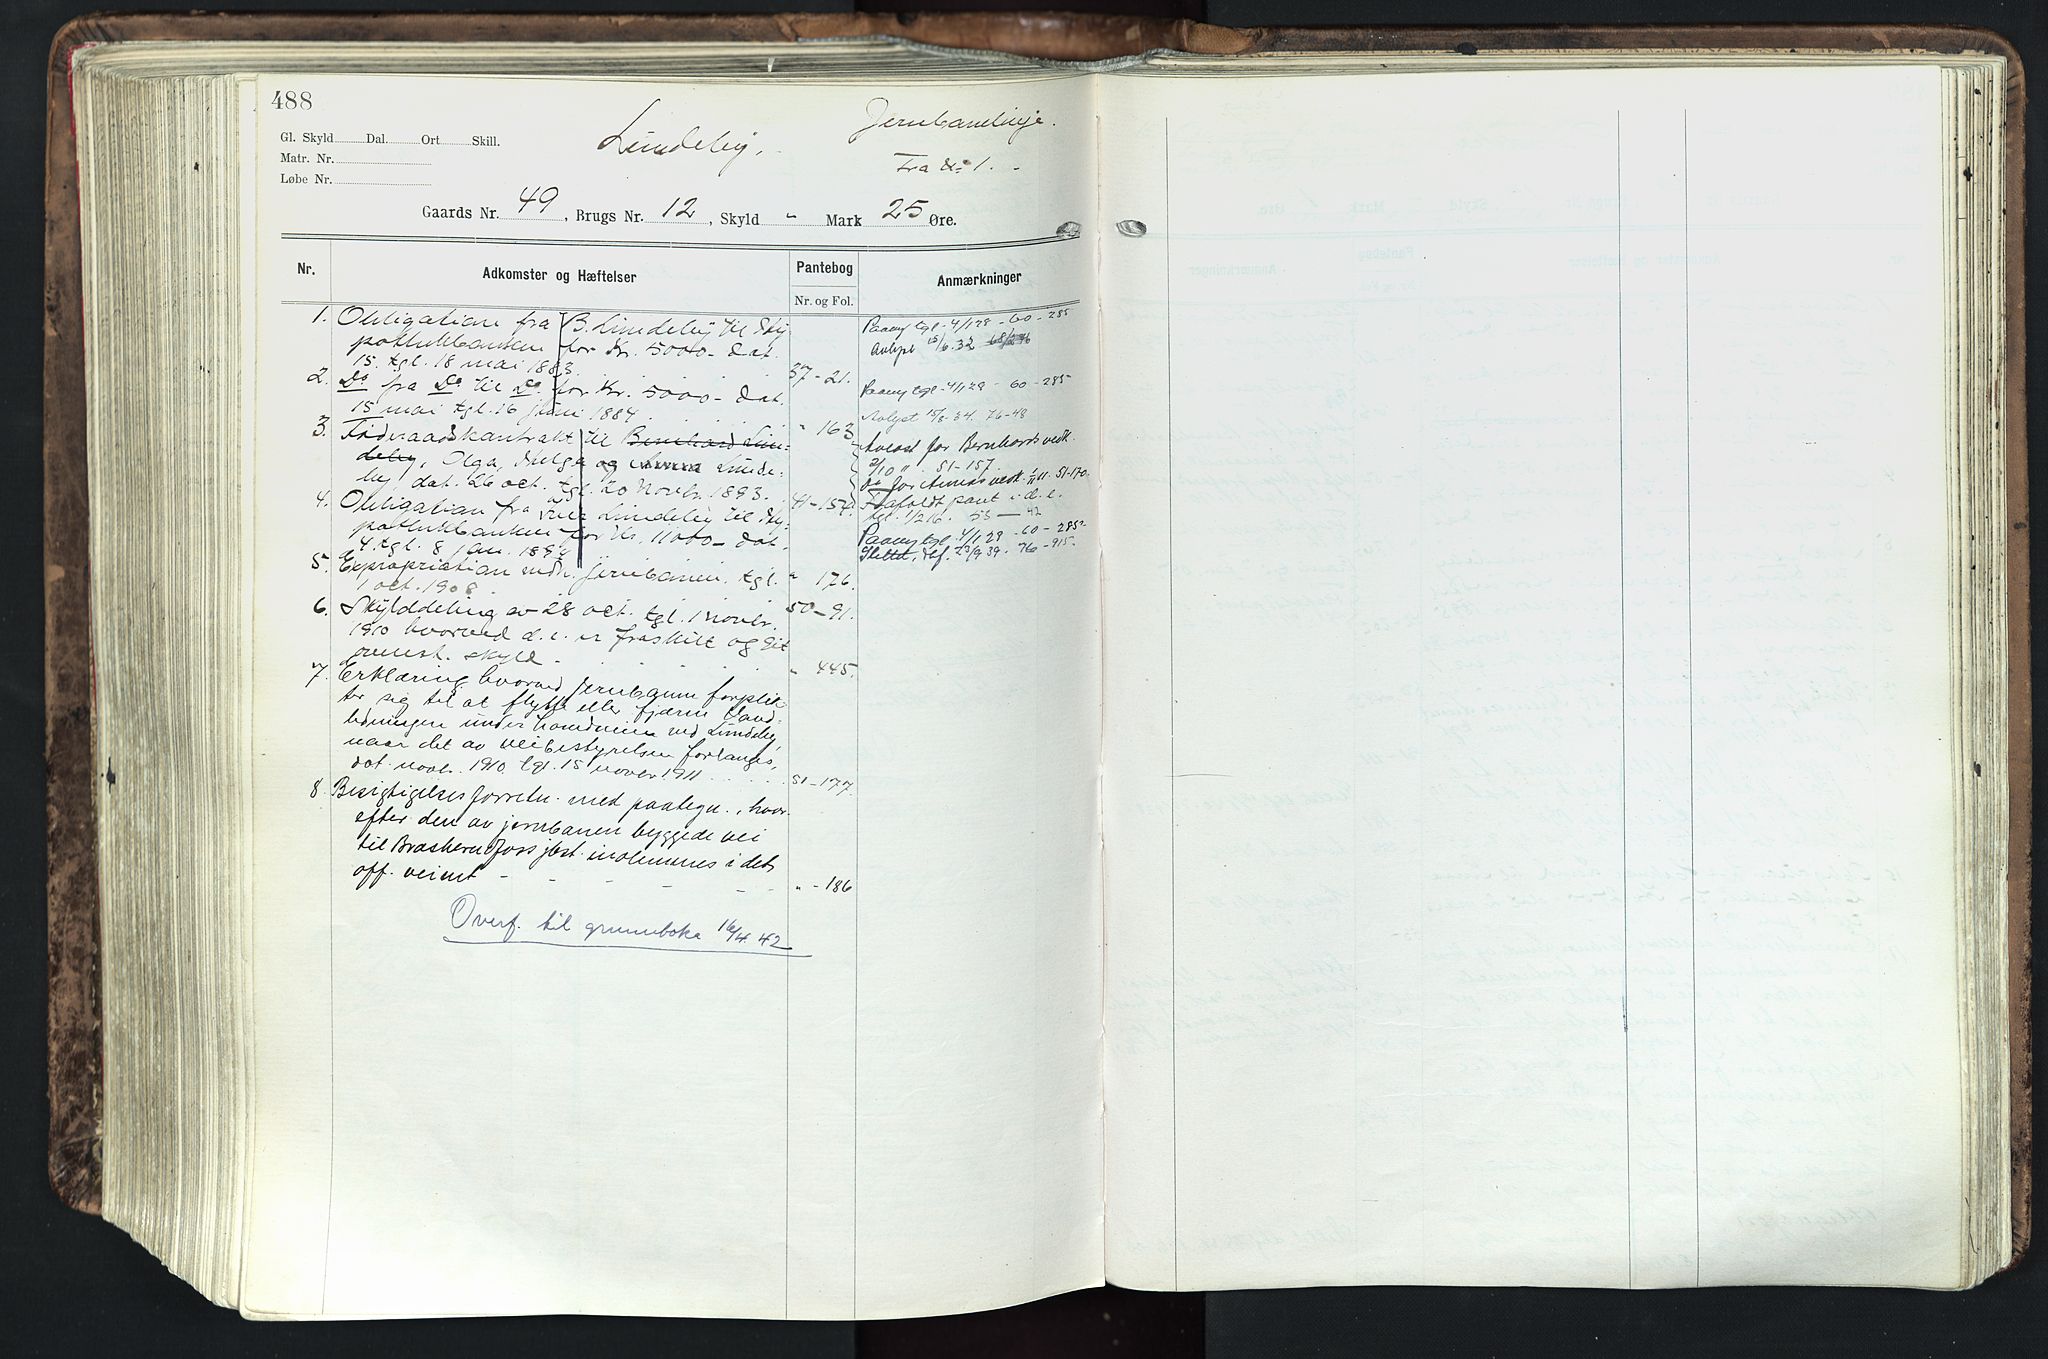 488
Gl. Skyld Dal. Ort Skill.
Matr. Nr.
Løbe Nr.
Lundeby,
Jernbanelinje.
Fra No 1. -
Gaards Nr. 49, Brugs Nr. 12, Skyld " Mark 25 Øre.
Nr.
Adkomster og Hæftelser
Pantebog
Nr. og Fol.
Anmærkninger
1. Obligation fra B. Lundeby til Hy
pothekbanken for Kr. 5000- dat.
15. tgl. 18 mai 1883. 37-21.
Paany tgl. 4/1 28 - 60 - 285
Avlyst 15/6.32
2. Do fra Do til Do for Kr. 5000- dat.
15 mai tgl. 16 juni 1884 " 163
Paany tgl. 4/1 28 - 60 - 285
Avlyst 15/8-34. 76-48
3. Føderaadskontrakt til Bernhard Lun-
deby, Olga, Helga og Anna Lunde-
by dat. 26 oct. tgl. 20 Novbr. 1893. 41-154.
Avlost for Bernhards vedk.
2/10 11. 51-157.
Do for Annas vedk. 1/11 11. 51-170.
4. Obligation fra Lundeby til Hy-
pothekbanken for Kr. 11000- dat.
4. tgl. 8 jan. 1894 " 176.
Frafaldt pant i d. e.
tgl. 1/2 16. 53 - 42
Paany tgl. 4/1 29 - 60 - 285
Slettet, 23/9 39. 76-915.
5. Expropriation vedk. jernbanen, tgl.
1 oct. 1908. 50-91.
6. Skylddeling av 28 oct. tgl. 1 Novbr.
1910 hvorved d. e. er fraskilt og git
ovenst. skyld. " 445.
7. Erklæring hvorved jernbanen forplik-
ter sig til at flytte eller fjerne vand-
ledningen under hovedveien ved Lundeby,
naar det av veibestyrelsen forlanges,
dat. novbr. 1910. tgl. 15 novbr 1911 51-177.
8. Besigtigelsesforretn. med paategn., hvor-
efter den av jernbanen byggede vei
til Braskereidfoss st. indlemmes i det
off. veinet " - 186
Overf. til grunnboka 16/4. 42